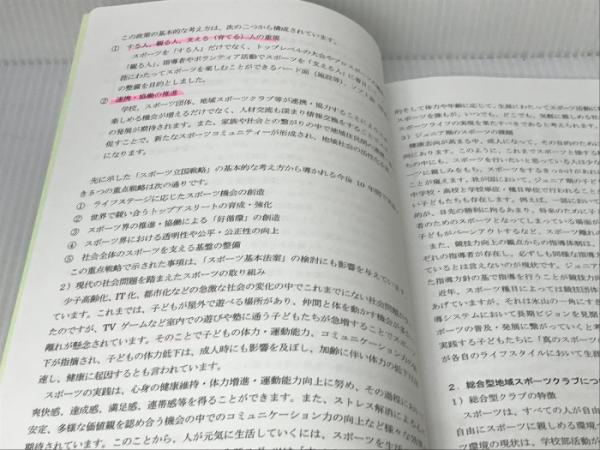 この政策の基本的な考え方は、次の二つから構成されています。
① する人、観る人、支える(育てる)人の重視
スポーツを「する人」だけでなく、トップレベルの大会やプロスポーツの
「観る人」、指導者やボランティア活動でスポーツを「支える人」に着目し、
にわたってスポーツを楽しむことができるハード面(施設等)、ソフト面
の整備を目的としました。
② 連携・協働の推進
学校、スポーツ団体、地域スポーツクラブ等が連携・協力することにより
楽しめる機会が増えるだけでなく、人材交流も深まり
の発展が期待されます。また、家族や社会との繋がりの中で地域住民間の
促すことで、新たなスポーツコミュニティーが形成され、地域社会の活性化
になります。
先に示した「スポーツ立国戦略」の基本的な考え方から導かれる今後10年間で
き5つの重点戦略は次の通りです。
① ライフステージに応じたスポーツ機会の創造
② 世界で競い合うトップアスリートの育成・強化
③ スポーツ界の推進・協働による「好循環」の創造
④ スポーツ界における透明性や公平・公正性の向上
⑤ 社会全体のスポーツを支える基盤の整備
この重点戦略で示された事項は、「スポーツ基本法案」の検討にも影響を与えています
2)現代の社会問題を踏まえたスポーツの取り組み
少子高齢化、IT化、都市化などの急激な社会の変化の中でこれまでにない社会問題が
ています。これまでは、子どもが屋外で遊べる場所があり、仲間と体を動かす機会が多
たのですが、TVゲームなど室内での遊びや塾に通う子どもたちが急増することでスポー
離れが懸念されています。そのことで子どもの体力・運動能力、コミュニケーション力の
下が指摘され、子どもの体力低下は、成人時にも影響を及ぼし、加齢に伴い体力の低下は
速し、健康に起因するとも言われています。
スポーツの実践は、心身の健康維持・体力増進・運動能力向上に努め、その過程におい
爽快感、達成感、満足感、連帯感等を得ることができます。また、ストレス解消による
安定、多様な価値観を認め合う機会の中でのコミュニケーション力の向上など様々な効果
期待されています。このことから、人が元気に生活していくには、スポーツを生活
的そして体力や年齢に応じて、生涯にわたってスポーツ活動に
るスポーツは、いつでも、どこでも、気軽に親しめる社
スポーツライフの実現を果たすべきであると考えられます。
3)ジュニア期のスポーツの課題
健康志向が高まる中、成人になって、その目的のために
あります。このように、これまでスポーツと接する
たちの中にも、スポーツを行いたいと思っている人は少な
ーツに親しみをもち、スポーツをするきっかけがあれ
とが窺えます。我が国において、ジュニア期の子ども
中学校・高校と学校単位・種目単位で行われることが
子どもたちも存在します。例えば、一部において
的が、目先の勝利に拘るあまり、将来のために子ど
者のためのスポーツとなってしまっている場面が
子どもがバーンアウトするなど、スポーツ離れ
また、競技力向上の観点からの指導体制は、
れぞれの指導者が存在し、必ずしも同様な指導
とは言えないのが現状です。ジュニア
た指導方針の基で指導を行うことが競技力向
近年、スポーツ種目によっては競技団体
あげていますが、それは氷山の一角にすぎ
導システムにおいて長期ビジョンを見据え
ポーツの普及・発展に繋がっていくと考え
実践する子どもたちに「真のスポーツの
が各自のライフスタイルにおいて生涯
2．総合型地域スポーツクラブにつ
1)総合型クラブの特徴
スポーツは、すべての人が自由
自由にスポーツに親しむ
ーツ環境の現状は、学校部活動が